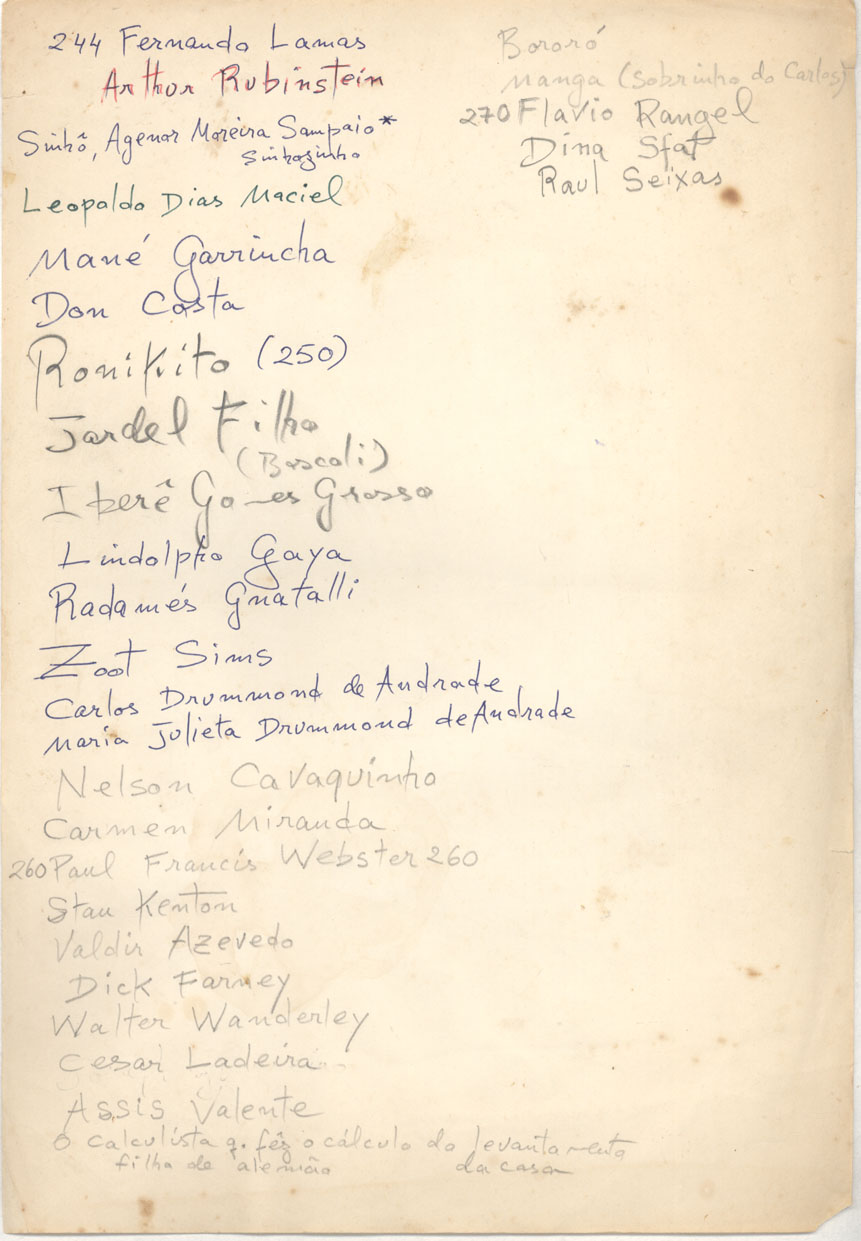 244 Fernando Lamas
Arthur Rubinstein
Sinhô, Agenor Moreira Sampaio*
Sinhozinho
Leopoldo Dias Maciel
Mané Garrincha
Don Costa
Ronikito (250)
Jardel Filho
(Boscoli)
Iberê Gomes Grosso
Lindolpho Gaya
Radamés Gnatalli
Zoot Sims
Carlos Drummond de Andrade
Maria Julieta Drummond de Andrade
Nelson Cavaquinho
Carmen Miranda
260 Paul Francis Webster 260
Stan Kenton
Valdir Azevedo
Dick Farney
Walter Wanderley
Cesar Ladeira
Assis Valente
O calculista q. fêz o cálculo do levantamento
filho de alemão da casa
Bororó
Manga (sobrinho do Carlos)
270 Flavio Rangel
Dina Sfat
Raul Seixas